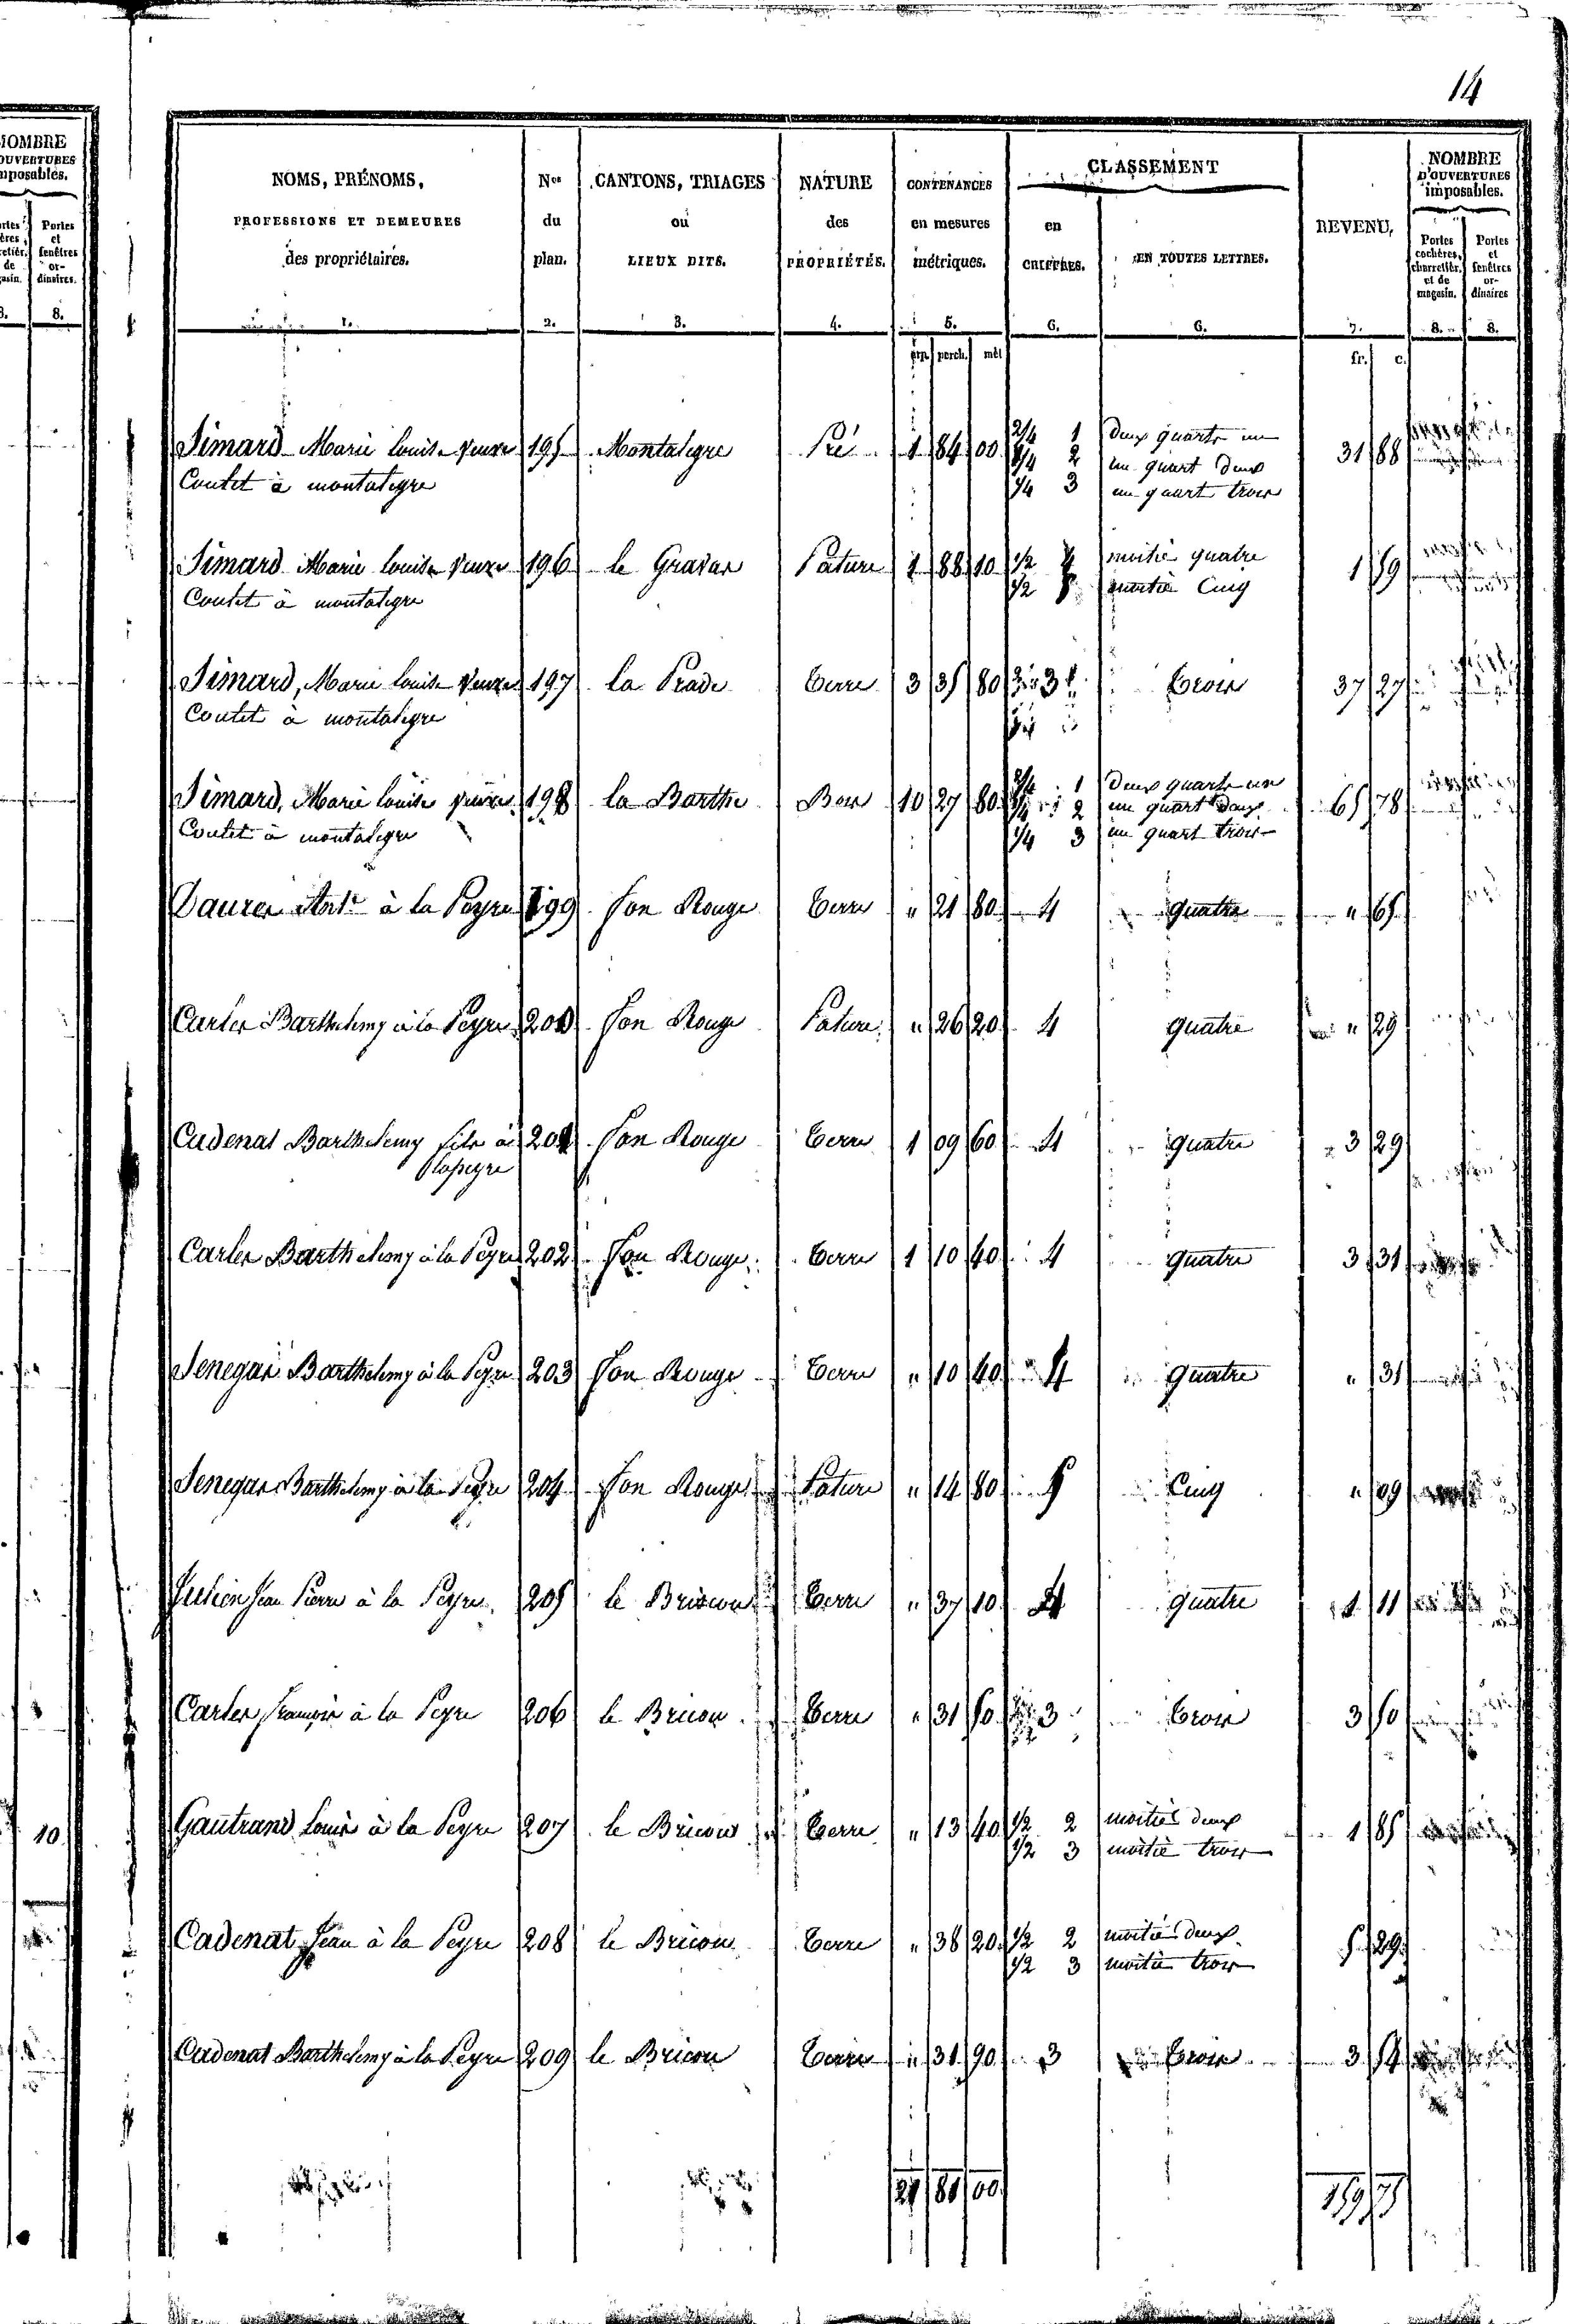 14
NOMBRE
D'OUVERTURES
imposables.
Portes
et
fenêtres
or-
dinaires.
8.
10
NOMS, PRÉNOMS,
PROFESSIONS ET DEMEURES
des propriétaires.
1.
Nos
du
plan.
2.
CANTONS, TRIAGES
ou
LIEUX DITS.
3.
NATURE
des
PROPRIÉTÉS.
4.
CONTENANCES
en mesures
métriques.
5.
arp. perch. mèt
CLASSEMENT
en
CHIFFRES.
6.
EN TOUTES LETTRES.
6.
REVENU.
7.
fr. c.
NOMBRE
D'OUVERTURES
imposables.
Portes
cochères,
charretièr.
et de
magasin.
8.
Portes
et
fenêtres
or-
dinaires
8.
Simard Marie louise veuve 195 Montalegre Pré 1 84 00 2/4 1 deux quarts un 31 88
1/4 2 un quart deux
Coutet à montalegre 1/4 3 un quart trois
Simard Marie louise veuve 196 le Gravas Pature 1 88 10 1/2 4 moitié quatre 1 59
Coutet à montalegre 1/2 5 moitié Cinq
Simard, Marie louise veuve 197 la Prade Terre 3 35 80 3 trois 37 27
Coutet à montalegre
Simard, Marie louise veuve 198 la Barthe Bois 10 27 80 2/4 1 deux quarts un 65 78
1/4 2 un quart deux
Coutet à montalegre 1/4 3 un quart trois
Daures à la Peyre 199 fon Rouge Terre " 21 80 4 quatre " 65
Carles Barthelemy à la Peyre 200 fon Rouge Pature " 26 20 4 quatre " 29
Cadenat Barthelemy fils à 201 fon Rouge Terre 1 09 60 4 quatre 3 29
lapeyre
Carles Barthelemy à la Peyre 202 fon Rouge Terre 1 10 40 4 quatre 3 31
Senegas Barthelemy à la Peyre 203 fon Rouge Terre " 10 40 4 quatre " 31
Senegas Barthelemy à la Peyre 204 fon Rouge Pature " 14 80 5 Cinq " 09
Julien Jean Pierre à la Peyre 205 le Bricou Terre " 37 10 4 quatre 1 11
Carles françois à la Peyre 206 le Bricou Terre " 31 50 3 trois 3 50
Gautrand Louis à la Peyre 207 le Bricou Terre " 13 40 1/2 2 moitié deux 1 85
1/2 3 moitié trois
Cadenat Jean à la Peyre 208 le Bricou Terre " 38 20 1/2 2 moitié deux 5 29
1/2 3 moitié trois
Cadenat Barthelemy à la Peyre 209 le Bricou Terre " 31 90 3 trois 3 54
21 81 00 159 75